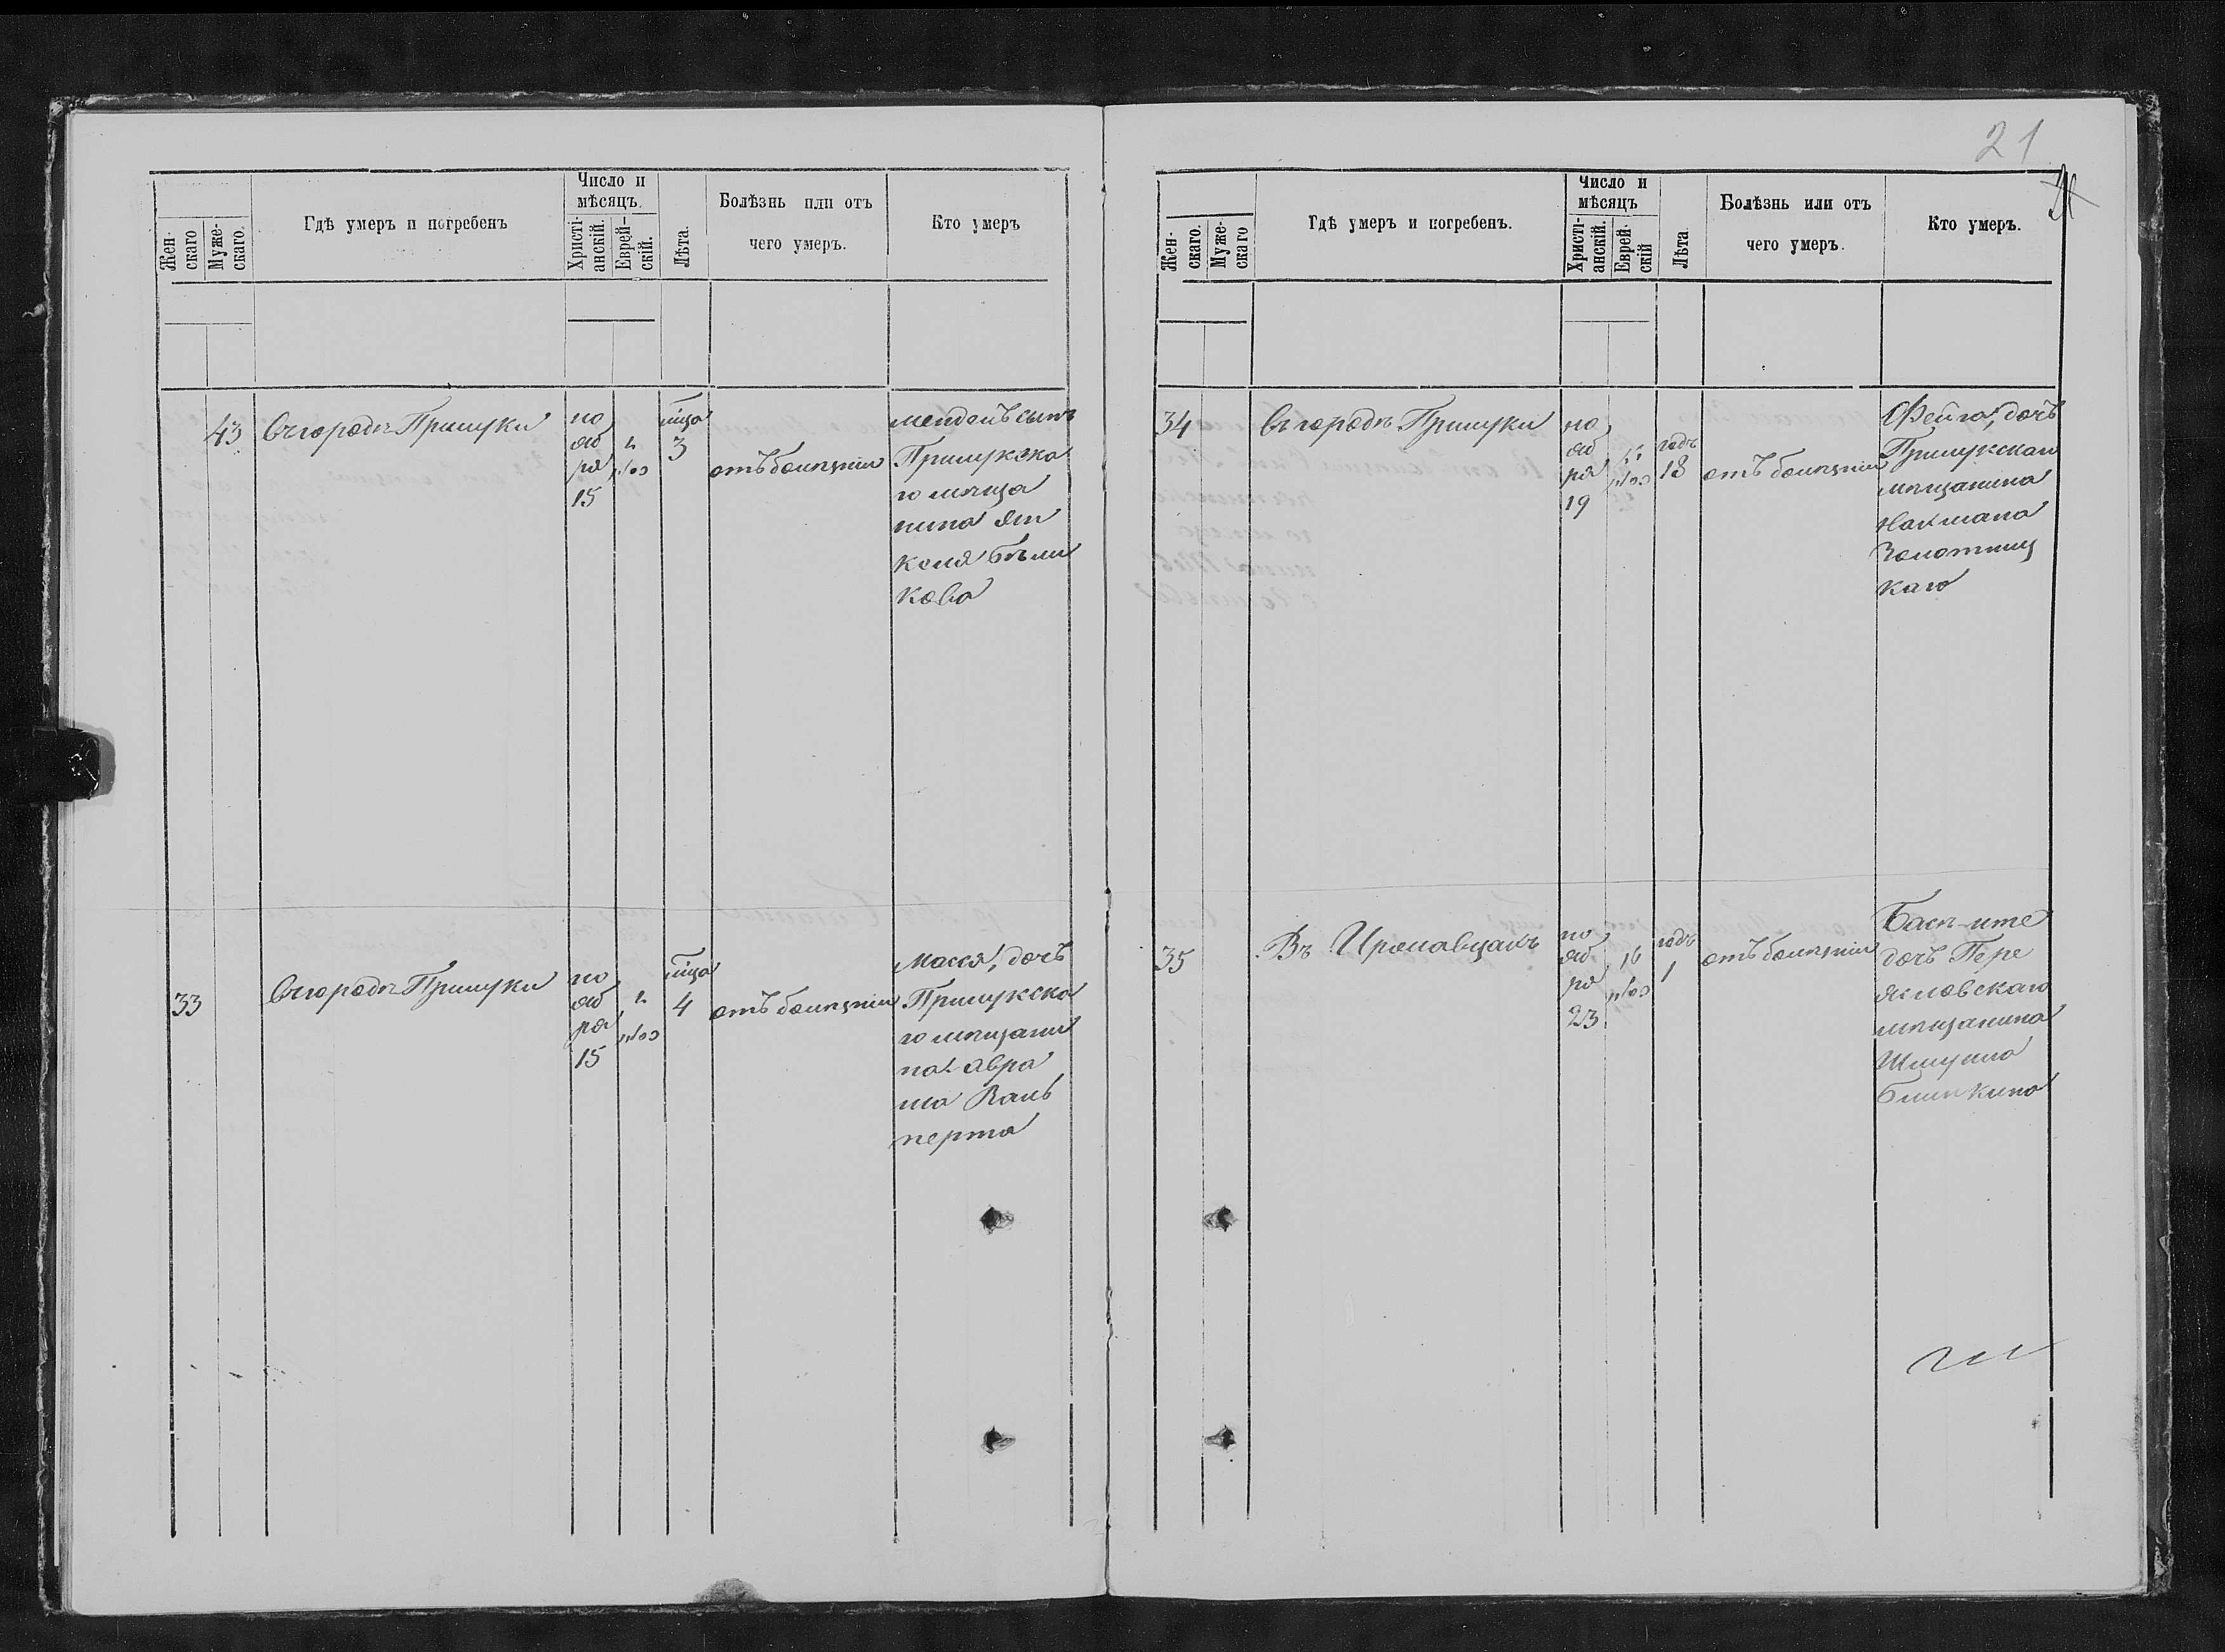 21
Жен-
скаго
Муже-
скаго.
Гдѣ умеръ и погребенъ
Число и
мѣсяцъ.
Христі-
анскій.
Еврей-
скій.
Лѣта.
Болѣзнь или отъ
чего умеръ.
Кто умеръ
43
Въ городѣ Прилуки
но
яб
ря
15
мца
3
отъ болѣзни
Мендель сынъ
Прилукска
го мѣща
нина Ян
келя Бѣли
кова
33
Въ городѣ Прилуки
но
яб
ря
15
мца
4
отъ болѣзни
Масся, дочь
Прилукска
го мѣщани
на Авра
ма
перта
Жен-
скаго.
Муже-
скаго
Гдѣ умеръ и погребенъ.
Число и
мѣсяцъ
Христі-
анскій.
Еврей-
скій
Лѣта
Болѣзнь или отъ
чего умеръ.
Кто умеръ.
34
Въ городѣ Прилуки
но
яб
ря
19
годъ
18
отъ болѣзни
Фейга, дочь
Прилукскаго
мѣщанина
Нахмана
Золотниц
каго
35
Въ
но
яб
ря
23
16
годъ
1
отъ болѣзни
дочь Пере
яславскаго
мѣщанина
Шмуила